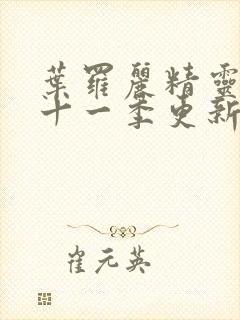 葉羅麗精靈
十一季更新
崔元英